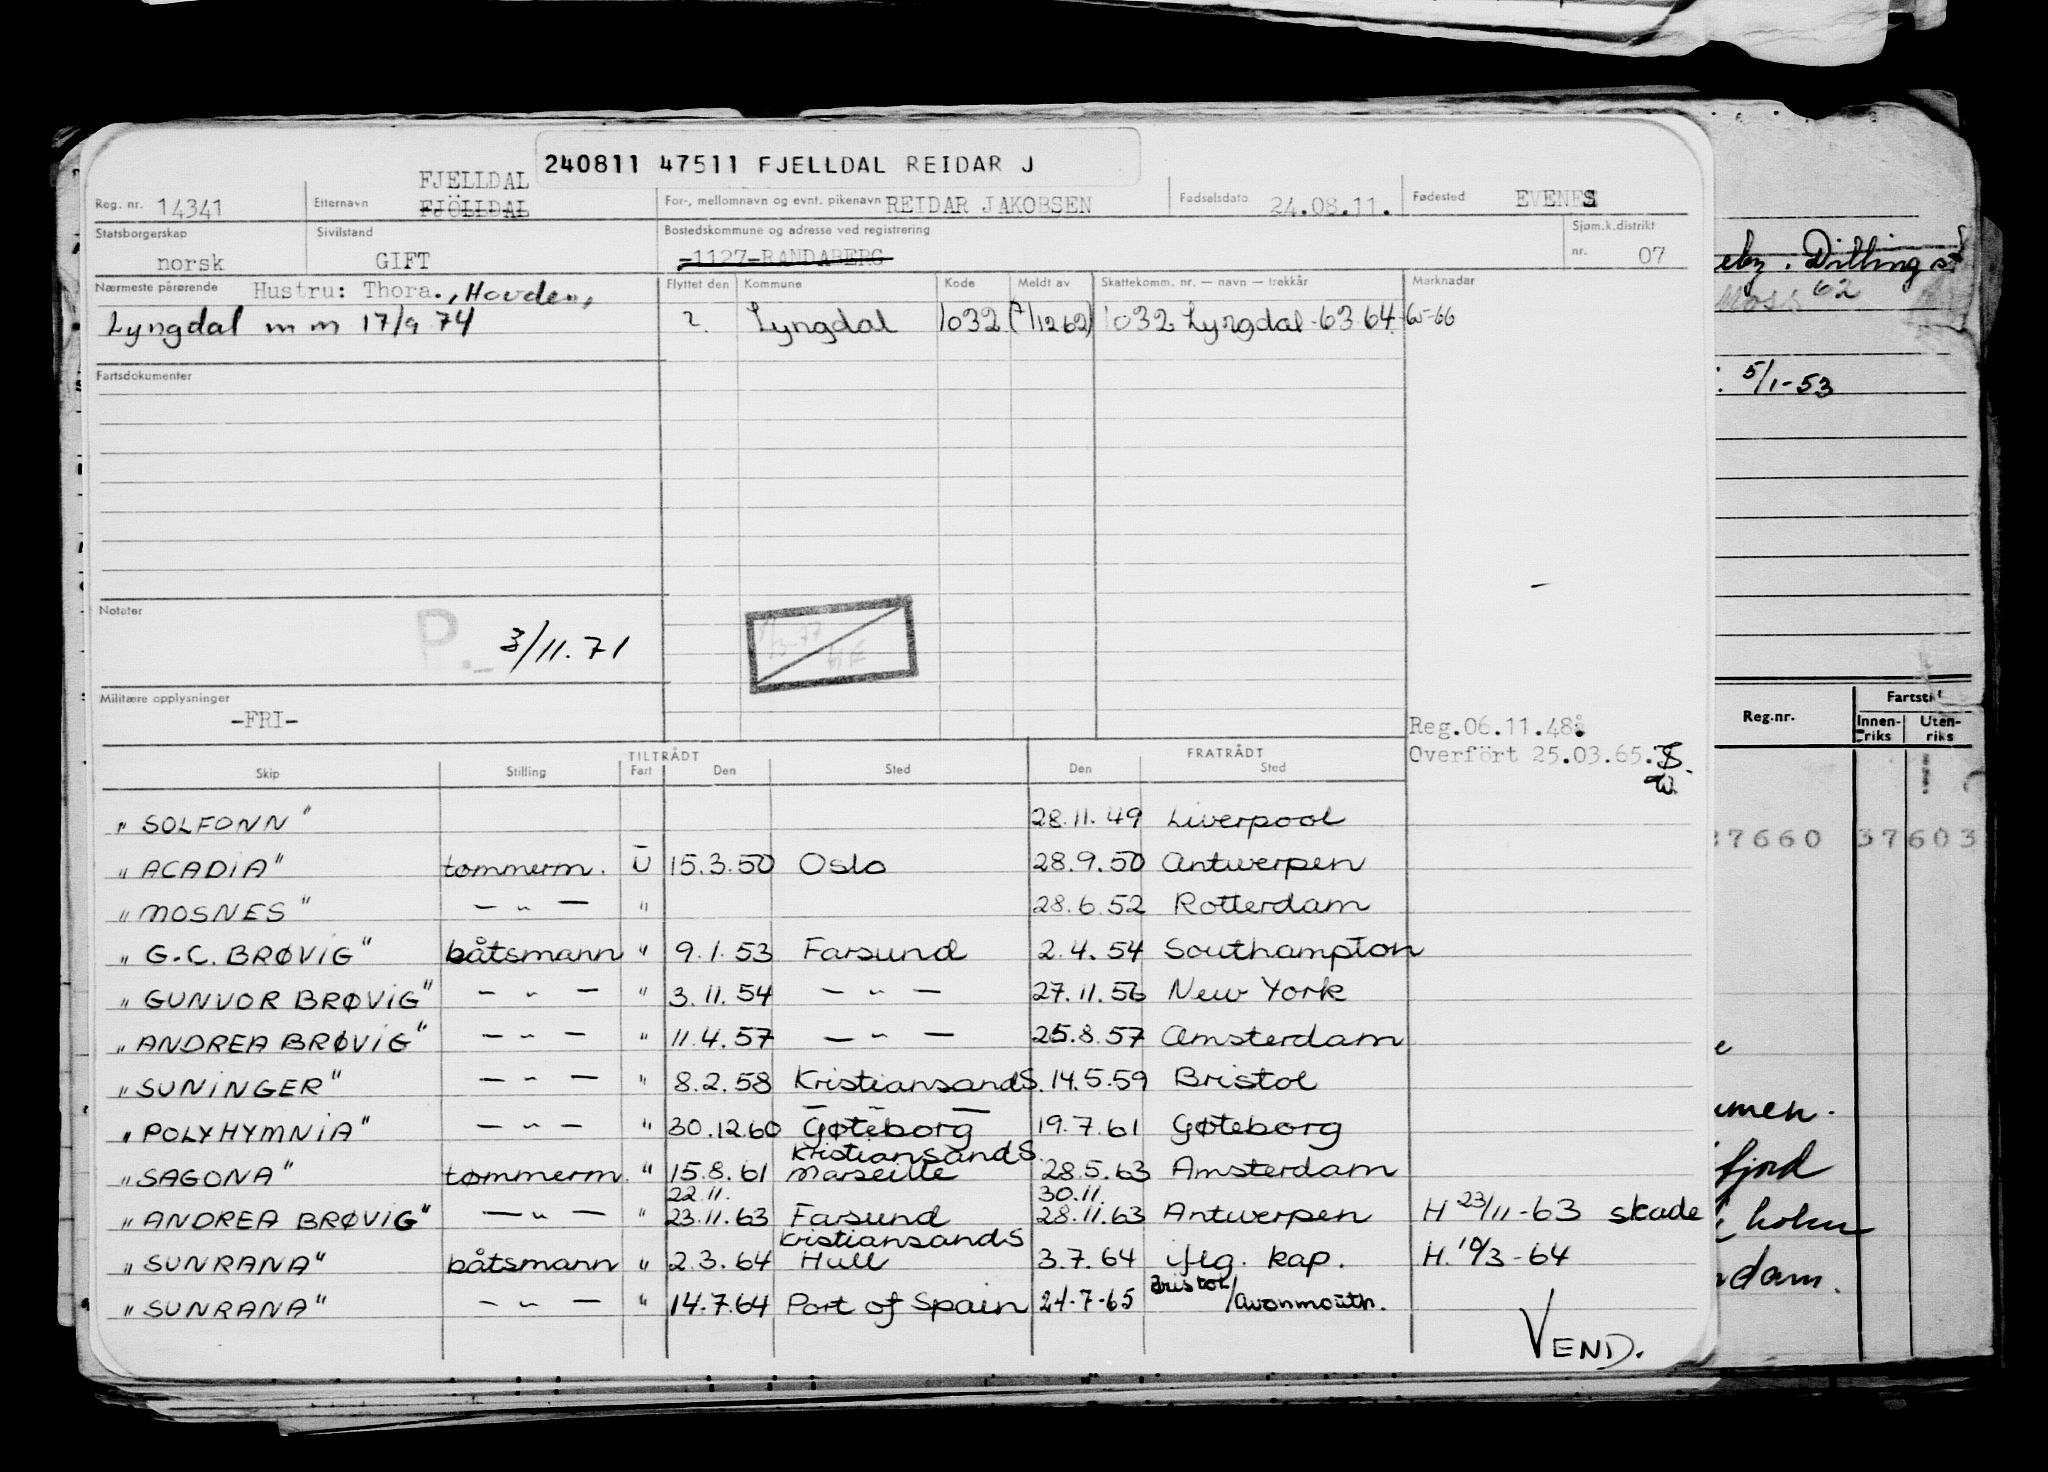 240811 47511 FJELLDAL REIDAR J
Reg. nr. 14341 Etternavn FJELLDAL FJÖLLDAL For-, mellomnavn og evnt. pikenavn REIDAR JAKOBSEN Fødselsdato 24.08.11. Fødested EVENES
Statsborgerskap norsk Sivilstand GIFT Bostedskommune og adresse ved registrering -1127-RANDABERG Sjøm.k.distrikt nr. 07
Nærmeste pårørende Hustru: Thora., Hovden, Flyttet den Kommune Kode Meldt av Skattekomm. nr. — navn — trekkår Marknader
Lyngdal m m 17/9 74 2. Lyngdal 1032 (7/12 62) 1032 Lyngdal-63 64 65-66
Fartsdokumenter
Notater P. 3/11.71
Militære opplysninger
-FRI-
Reg.06.11.48
Overfört 25.03.65.
TILTRÅDT FRATRÅDT
Skip Stilling Fart Den Sted Den Sted
"SOLFONN" 28.11.49 Liverpool
"ACADIA" tømmerm. U 15.3.50 Oslo 28.9.50 Antwerpen
"MOSNES" — " — " 28.6.52 Rotterdam
"G.C. BRØVIG" båtsmann " 9.1.53 Farsund 2.4.54 Southampton
"GUNVOR BRØVIG" — " — " 3.11.54 — " — 27.11.56 New York
"ANDREA BRØVIG" — " — " 11.4.57 — " — 25.8.57 Amsterdam
"SUNINGER" — " — " 8.2.58 Kristiansand S. 14.5.59 Bristol
"POLYHYMNIA" — " — " 30.12.60 — " — Gøteborg 19.7.61 Gøteborg
"SAGONA" tømmerm. " 15.8.61 Kristiansand S. Marseille 28.5.63 Amsterdam
"ANDREA BRØVIG" — " — " 22.11. 23.11.63 Farsund 30.11. 28.11.63 Antwerpen H 23/11-63 skade
"SUNRANA" båtsmann " 2.3.64 Kristiansand S Hull 3.7.64 iflg. kap. H. 10/3-64
"SUNRANA" — " — " 14.7.64 Port of Spain 21-7-65 Bristol/Avonmouth.
VEND.
Dilling st
Moss 62
5/1-53
Reg.nr. Fartstid
Innenriks Utenriks
37660 37603
fjord
holm
dam.